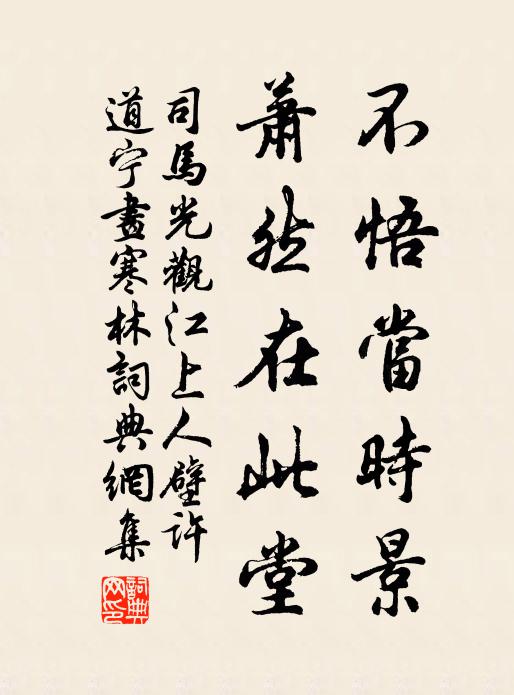 不悟當時景
蕭然在此堂
司馬光觀江上人壁許
道宁畫寒林詞典網集
詞典
网印